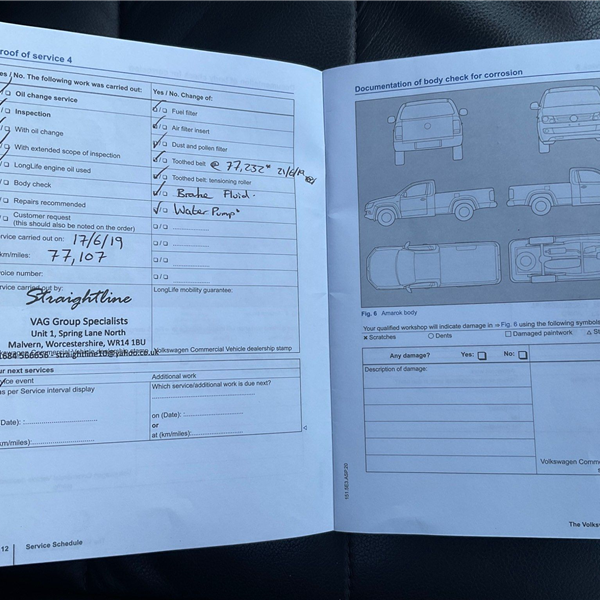 roof of service 4
es / No. The following work was carried out:
Oil change service
Inspection
With oil change
With extended scope of inspection
LongLife engine oil used
Body check
Repairs recommended
Customer request
(this should also be noted on the order)
rvice carried out on: 17/6/19
km/miles): 77,107
voice number:
rvice carried out by:
Straightline
VAG Group Specialists
Unit 1, Spring Lane North
Malvern, Worcestershire, WR14 1BU
Yes / No. Change of:
Fuel filter
Air filter insert
Dust and pollen filter
Toothed belt @ 77,232 21/6/19
Toothed belt: tensioning roller
Brake Fluid.
Water Pump
LongLife mobility guarantee:
Volkswagen Commercial Vehicle dealership stamp
ur next services
ice event
as per Service interval display
(Date):
km/miles):
Additional work
Which service/additional work is due next?
on (Date):
or
at (km/miles):
12 Service Schedule
Documentation of body check for corrosion
Fig. 6 Amarok body
Your qualified workshop will indicate damage in ⇒ Fig. 6 using the following symbols
× Scratches ○ Dents □ Damaged paintwork △ St
Any damage? Yes: No:
Description of damage:
Volkswagen Comme
151.5E3.ASP.20
The Volksw